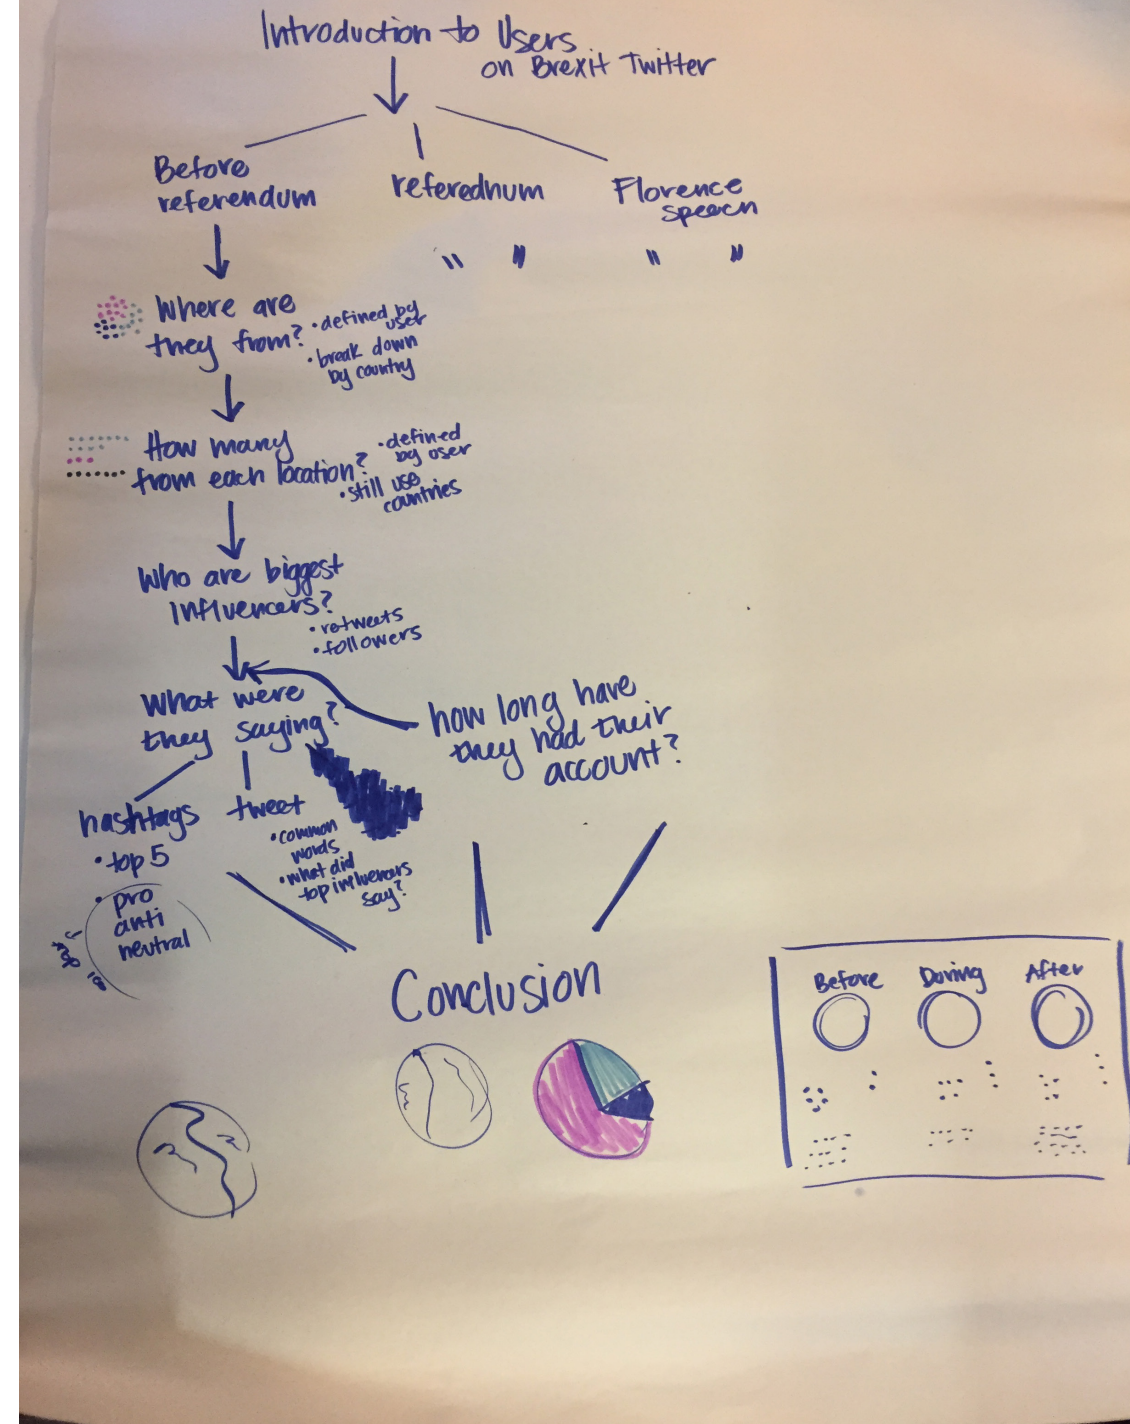 Introduction to Users
on Brexit Twitter
Before
referendum
referednum
Florence
speech
" "
" "
Where are
they from?
• defined by
user
• break down
by country
How many
from each location?
• defined
by user
• still use
countries
Who are biggest
influencers?
• retweets
• followers
What were
they saying?
how long have
they had their
account?
hashtags
• top 5
• pro
anti
neutral
top 100
tweet
• common
words
• what did
top influencers
say?
Conclusion
Before During After